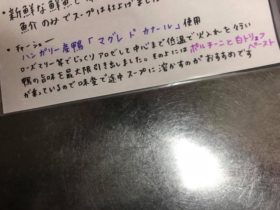 ・新鮮な鮮魚と
魚介のみでスープは仕上げました
・チャーシュー
ハンガリー産鴨「マグレドカナール」使用
ローズマリー等でじっくりアロゼして中心まで低温で火入れを行い
鴨の旨味を最大限引き出しました。その上にはポルチーニと白トリュフペースト
が乗っているので味変で途中スープに溶かすのがおすすめです